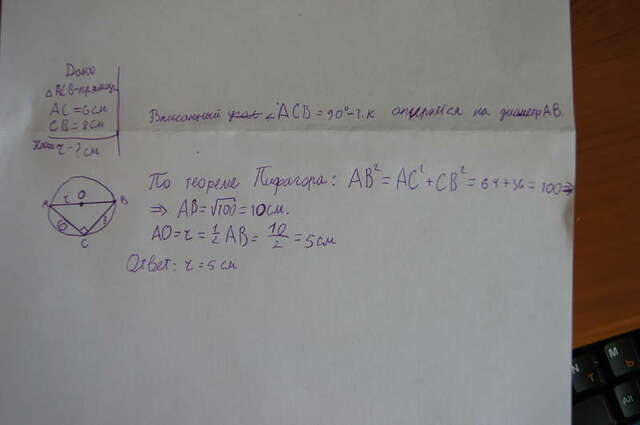 Дано
△ ACB - прямоуг.
AC = 6 см
CB = 8 см
r - ? см
Вписанный ∠ ACB = 90° - т.к опирается на диаметр AB.
По теореме Пифагора: AB² = AC² + CB² = 64 + 36 = 100 ⇒
⇒ AB = √100 = 10 см.
AO = r = 1/2 AB = 10/2 = 5 см
Ответ: r = 5 см
A r O B
6 8
C
N т
M ь
Alt